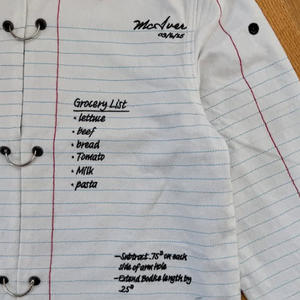 McAver
03/6/25
Grocery List
• lettuce
• beef
• bread
• Tomato
• Milk
• pasta
—Subtract .75" on each
side of arm hole
—Extend Bodice length by
.25"